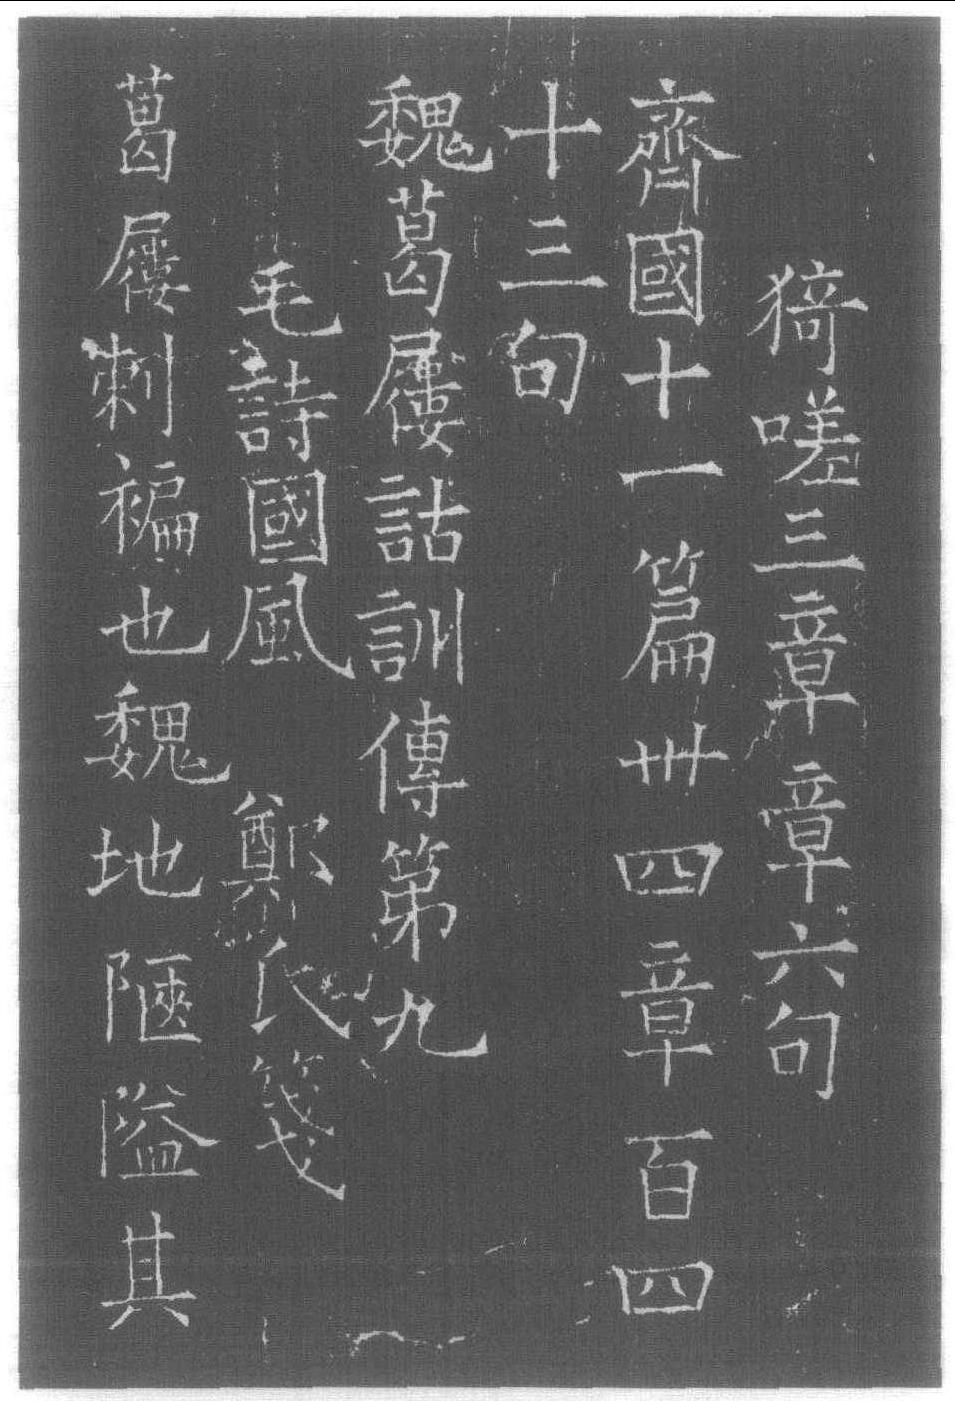 猗嗟三章章六句
齊國十一篇卅四章百四
十三句
魏葛屨詁訓傳第九
毛詩國風 鄭氏箋
葛屨刺褊也魏地陿隘其